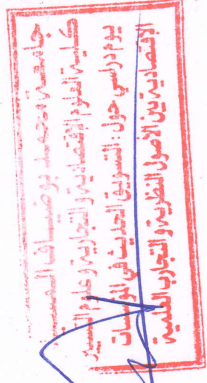 جامعة محمد بوضياف المسيلة
كلية العلوم الاقتصادية والتجارية وعلوم التسيير
يوم دراسي حول : التسويق الحديث في المؤسسات
الاقتصادية بين الأصول النظرية والتجارب العلمية